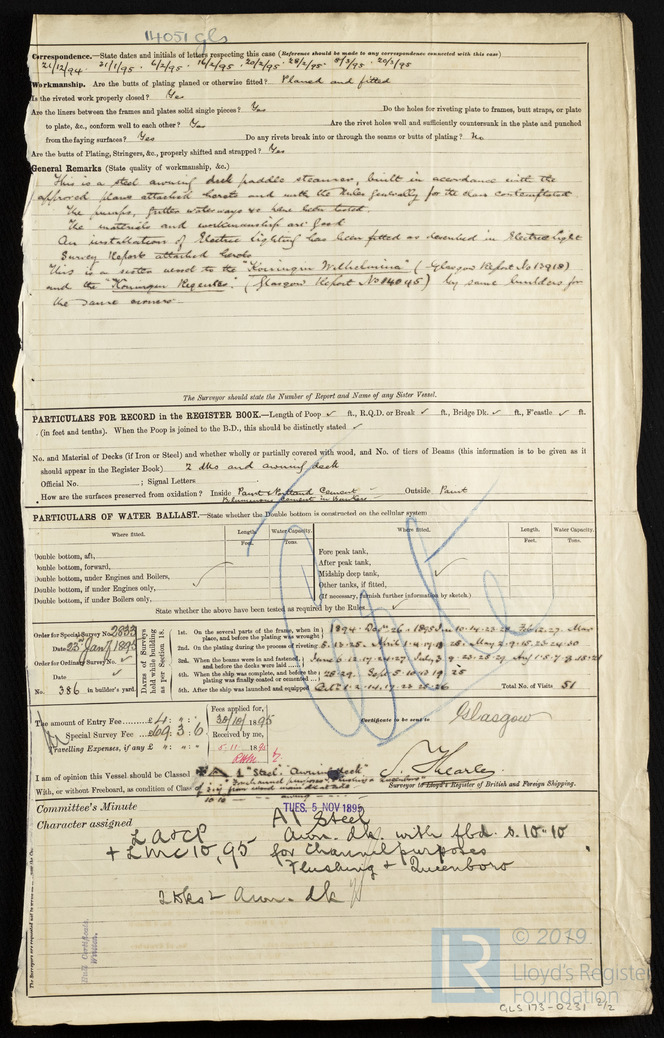 14051 gls
Correspondence.—State dates and initials of letters respecting this case (Reference should be made to any correspondence connected with this case)
21/12/94. 21/1/95. 6/2/95. 14/2/95. 20/2/95. 28/2/95. 8/3/95. 20/2/95
Workmanship. Are the butts of plating planed or otherwise fitted? Planed and fitted
Is the riveted work properly closed? Yes
Are the liners between the frames and plates solid single pieces? Yes Do the holes for riveting plate to frames, butt straps, or plate
to plate, &c., conform well to each other? Yes Are the rivet holes well and sufficiently countersunk in the plate and punched
from the faying surfaces? Yes Do any rivets break into or through the seams or butts of plating? No
Are the butts of Plating, Stringers, &c., properly shifted and strapped? Yes
General Remarks (State quality of workmanship, &c.)
This is a steel awning deck paddle steamer, built in accordance with the
approved plans attached hereto and with the Rules generally for the class contemplated.
The pumps, gutter waterways &c have been tested.
The materials and workmanship are good
An installation of Electric lighting has been fitted as described in Electric Light
Survey Report attached hereto
This is a sister vessel to the "Koningin Wilhelmina" (Glasgow Report No 13918)
and the "Koningin Regentes" (Glasgow Report No 14045) by same builders for
the same owners
The Surveyor should state the Number of Report and Name of any Sister Vessel.
PARTICULARS FOR RECORD in the REGISTER BOOK.—Length of Poop ✓ ft., R.Q.D. or Break ✓ ft., Bridge Dk. ✓ ft., F'castle ✓ ft.
(in feet and tenths). When the Poop is joined to the B.D., this should be distinctly stated ✓
No. and Material of Decks (if Iron or Steel) and whether wholly or partially covered with wood, and No. of tiers of Beams (this information is to be given as it
should appear in the Register Book) 2 dks and awning deck
Official No. ; Signal Letters
How are the surfaces preserved from oxidation? Inside Paint & Portland Cement Outside Paint
Bituminous Cement in Bunkers
PARTICULARS OF WATER BALLAST.—State whether the Double bottom is constructed on the cellular system
Where fitted. Length. Water Capacity. Where fitted. Length. Water Capacity.
Feet. Tons. Feet. Tons.
Double bottom, aft, Fore peak tank,
Double bottom, forward, After peak tank,
Double bottom, under Engines and Boilers, Midship deep tank,
Double bottom, if under Engines only, Other tanks, if fitted,
Double bottom, if under Boilers only, (If necessary, furnish further information by sketch.)
State whether the above have been tested as required by the Rules
Order for Special Survey No. 2833
Date 23rd Jany 1895
Order for Ordinary Survey No. ✓
Date ✓
No. 386 in builder's yard.
DATES of Surveys held while building as per Section 18.
1st. On the several parts of the frame, when in place, and before the plating was wrought
2nd. On the plating during the process of riveting
3rd. When the beams were in and fastened, and before the decks were laid
4th. When the ship was complete, and before the plating was finally coated or cemented
5th. After the vessel was launched and equipped
Total No. of Visits 51
The amount of Entry Fee £4 : " : "
Special Survey Fee £69 : 3 : 6
Travelling Expenses, if any £ " : " : "
Fees applied for,
30/10/1895
Received by me,
5.11.1895
Certificate to be sent to Glasgow
I am of opinion this Vessel should be Classed ✠ A 1 "Steel" "Awning deck"
With, or without Freeboard, as condition of Class
Surveyor to Lloyd's Register of British and Foreign Shipping.
Committee's Minute TUES. 5 NOV 1895
Character assigned A1 Steel
L A & C P Awn. dk. with fbd. s. 10-10
+ LMC 10,95 for Channel purposes
Flushing & Queenboro
2 Dks & Awn. dk
Hull Certificate Written.
© 2019
LR
Lloyd's Register
Foundation
GLS 173-0231 2/2